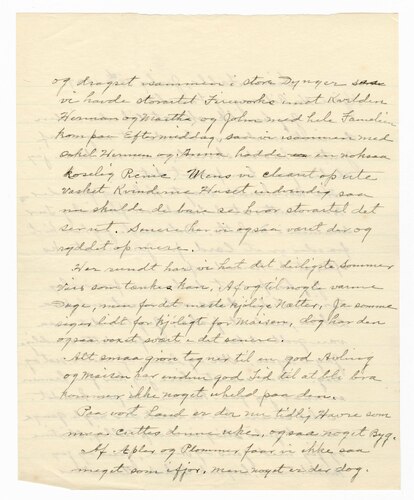 og draget sammen i store Dynger saa
vi havde storartet Fireworks imot Kvelden
Herman og Martha og John med hele Familien
kom paa Eftermiddag, saa vi sammen med
onkel Herman og Anna hadde en noksaa
koselig Picnic. Mens vi cleant op ute
vasket Kvinderne Huset indvendig saa
nu skulde de bare se hvor storartet det
ser ut. Senere har vi ogsaa været der og
ryddet op mere.
Her rundt har vi hat det deiligste Sommer
Veir som tænkes kan. Af og til nogle varme
Dage, men for det meste kjølige Nætter. Ja somme
siger lidt for kjøligt for Maisen, dog har den
ogsaa voxet svært i det senere.
Alt smaagrøn tegner til en god Avling
og Maisen har endnu god Tid til at bli bra
kommer ikke noget uheld paa den.
Paa vort Land er der nu tidlig Havre som
mia cuttes denne uken, ogsaa noget Byg.
Af Apler og Plommer faar vi ikke saa
meget som ifjor, men noget er der dog.